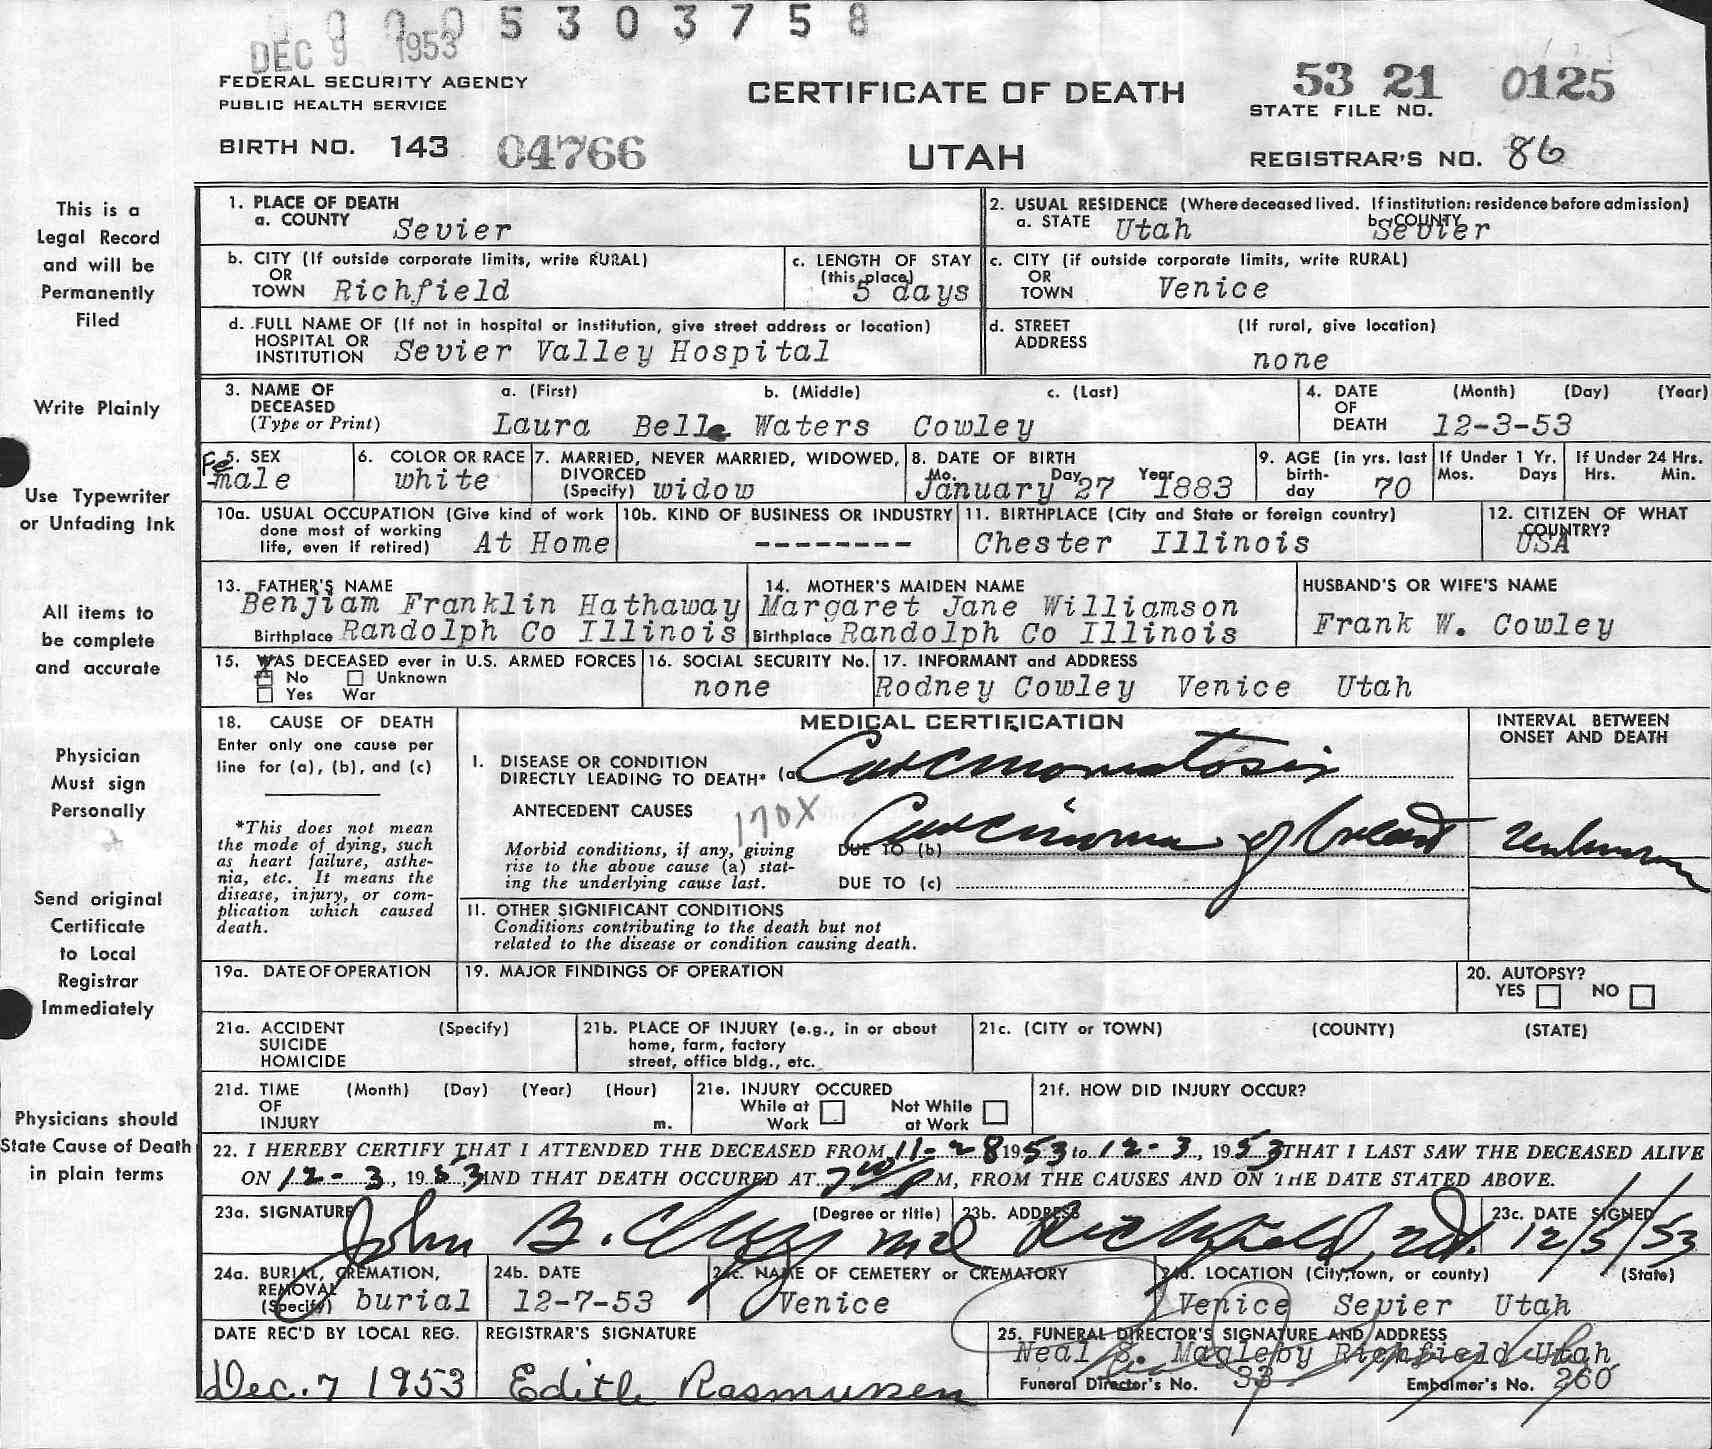 0 0 0 5 3 0 3 7 5 8
DEC 9 1953
FEDERAL SECURITY AGENCY
PUBLIC HEALTH SERVICE
CERTIFICATE OF DEATH
53 21 0125
STATE FILE NO.
BIRTH NO. 143 04766
UTAH
REGISTRAR'S NO. 86
This is a
Legal Record
and will be
Permanently
Filed
Write Plainly
Use Typewriter
or Unfading Ink
All items to
be complete
and accurate
Physician
Must sign
Personally
Send original
Certificate
to Local
Registrar
Immediately
Physicians should
State Cause of Death
in plain terms
1. PLACE OF DEATH
a. COUNTY Sevier
2. USUAL RESIDENCE (Where deceased lived. If institution: residence before admission)
a. STATE Utah b. COUNTY Sevier
b. CITY (If outside corporate limits, write RURAL)
OR
TOWN Richfield
c. LENGTH OF STAY
(this place)
5 days
c. CITY (if outside corporate limits, write RURAL)
OR
TOWN Venice
d. FULL NAME OF (If not in hospital or institution, give street address or location)
HOSPITAL OR
INSTITUTION Sevier Valley Hospital
d. STREET (If rural, give location)
ADDRESS
none
3. NAME OF a. (First) b. (Middle) c. (Last)
DECEASED
(Type or Print) Laura Belle Waters Cowley
4. DATE (Month) (Day) (Year)
OF
DEATH 12-3-53
5. SEX
Female
6. COLOR OR RACE
white
7. MARRIED, NEVER MARRIED, WIDOWED,
DIVORCED
(Specify) widow
8. DATE OF BIRTH
Mo. Day Year
January 27 1883
9. AGE (in yrs. last
birth-
day 70
If Under 1 Yr.
Mos. Days
If Under 24 Hrs.
Hrs. Min.
10a. USUAL OCCUPATION (Give kind of work
done most of working
life, even if retired) At Home
10b. KIND OF BUSINESS OR INDUSTRY
--------
11. BIRTHPLACE (City and State or foreign country)
Chester Illinois
12. CITIZEN OF WHAT
COUNTRY?
USA
13. FATHER'S NAME
Benjiam Franklin Hathaway
Birthplace Randolph Co Illinois
14. MOTHER'S MAIDEN NAME
Margaret Jane Williamson
Birthplace Randolph Co Illinois
HUSBAND'S OR WIFE'S NAME
Frank W. Cowley
15. WAS DECEASED ever in U.S. ARMED FORCES
X No Unknown
Yes War
16. SOCIAL SECURITY No.
none
17. INFORMANT and ADDRESS
Rodney Cowley Venice Utah
18. CAUSE OF DEATH
Enter only one cause per
line for (a), (b), and (c)
*This does not mean
the mode of dying, such
as heart failure, asthe-
nia, etc. It means the
disease, injury, or com-
plication which caused
death.
MEDICAL CERTIFICATION
I. DISEASE OR CONDITION
DIRECTLY LEADING TO DEATH* (a) Carcinomatosis
ANTECEDENT CAUSES
170X
Morbid conditions, if any, giving
rise to the above cause (a) stat-
ing the underlying cause last.
DUE TO (b) Carcinoma of breast
DUE TO (c)
INTERVAL BETWEEN
ONSET AND DEATH
Unknown
II. OTHER SIGNIFICANT CONDITIONS
Conditions contributing to the death but not
related to the disease or condition causing death.
19a. DATE OF OPERATION
19. MAJOR FINDINGS OF OPERATION
20. AUTOPSY?
YES NO
21a. ACCIDENT (Specify)
SUICIDE
HOMICIDE
21b. PLACE OF INJURY (e.g., in or about
home, farm, factory
street, office bldg., etc.
21c. (CITY or TOWN) (COUNTY) (STATE)
21d. TIME (Month) (Day) (Year) (Hour)
OF
INJURY m.
21e. INJURY OCCURED
While at Work Not While at Work
21f. HOW DID INJURY OCCUR?
22. I HEREBY CERTIFY THAT I ATTENDED THE DECEASED FROM 11-28 1953 to 12-3, 1953 THAT I LAST SAW THE DECEASED ALIVE
ON 12-3, 1953 AND THAT DEATH OCCURED AT 7 P M, FROM THE CAUSES AND ON THE DATE STATED ABOVE.
23a. SIGNATURE (Degree or title)
John B. md
23b. ADDRESS
Richfield, Ut.
23c. DATE SIGNED
12/5/53
24a. BURIAL, CREMATION,
REMOVAL
(Specify) burial
24b. DATE
12-7-53
24c. NAME OF CEMETERY or CREMATORY
Venice
24d. LOCATION (City, town, or county) (State)
Venice Sevier Utah
DATE REC'D BY LOCAL REG.
Dec. 7 1953
REGISTRAR'S SIGNATURE
Edith Rasmussen
25. FUNERAL DIRECTOR'S SIGNATURE AND ADDRESS
Neal S. Magleby Richfield Utah
Funeral Director's No. 33 Embalmer's No. 260